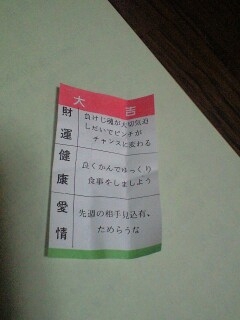 大吉
財運
負けじ魂が大切気迫
しだいでピンチが
チャンスに変わる
健康
良くかんでゆっくり
食事をしましよう
愛情
先週の相手見込有、
ためらうな